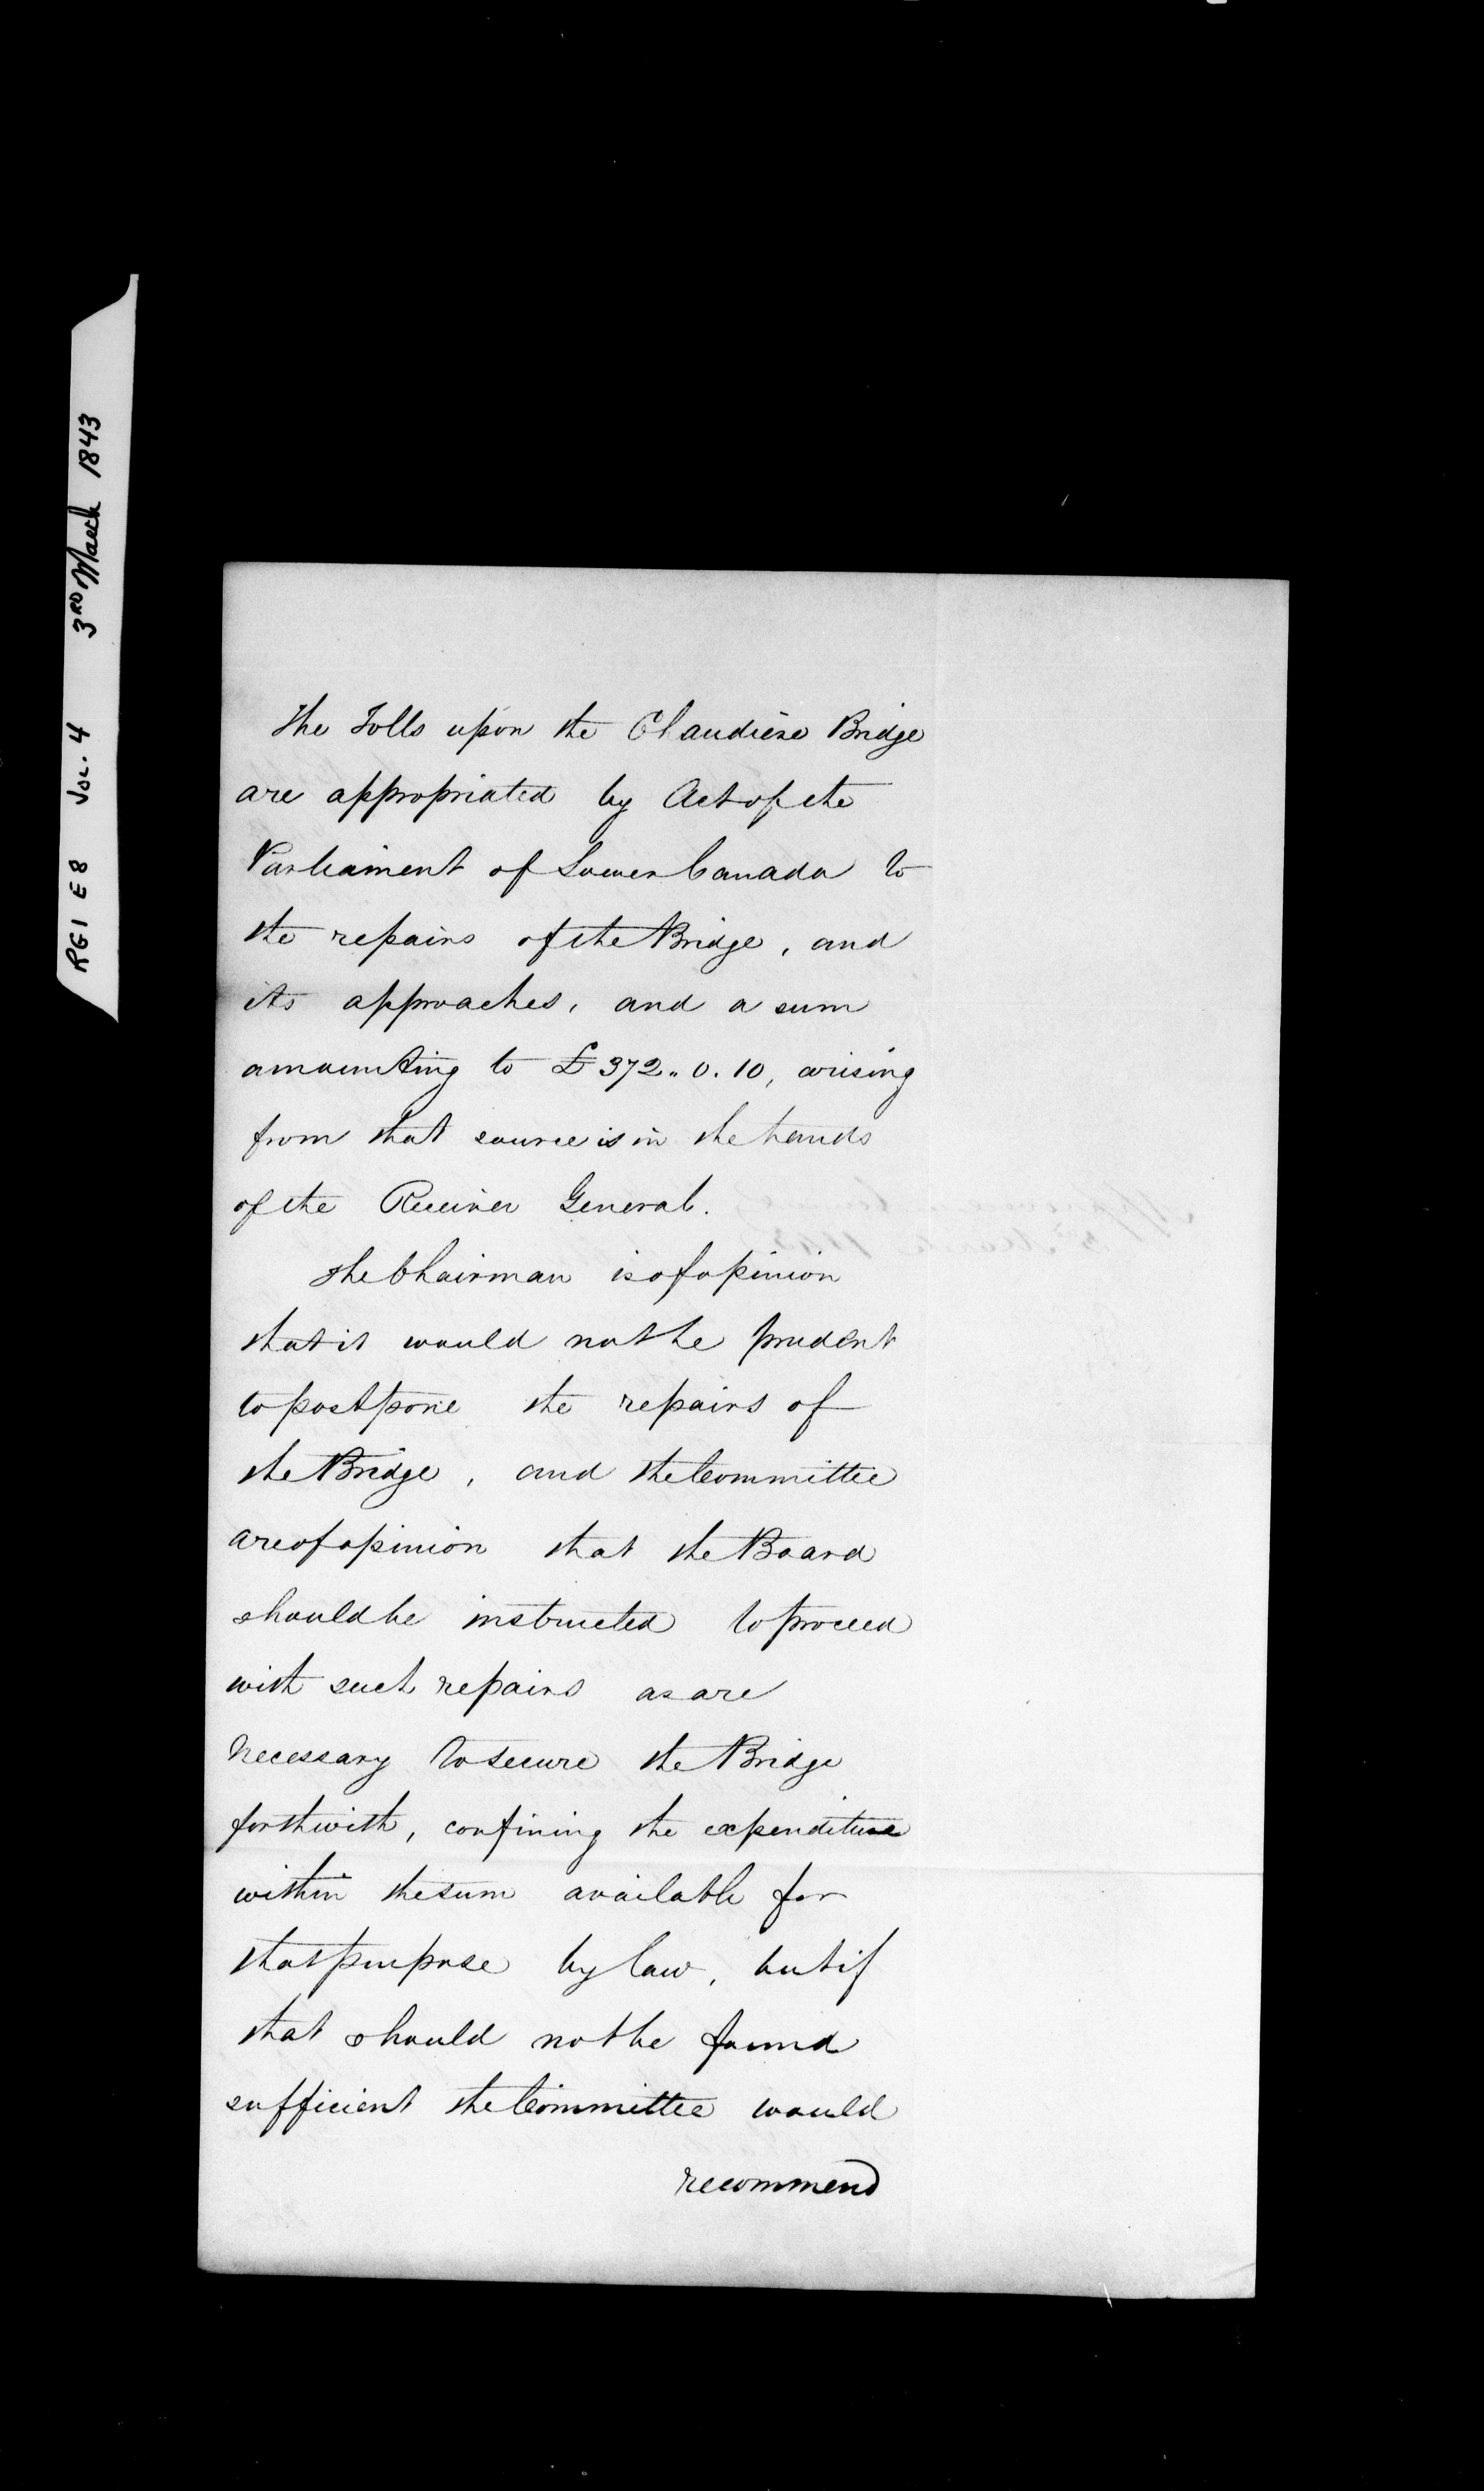 RG1 E8 Vol. 4 3RD March 1843
The Tolls upon the Chaudiere Bridge
are appropriated by Act of the
Parliament of Lower Canada to
the repairs of the Bridge, and
its approaches, and a sum
amounting to £372.. 0. 10, arising
from that source is in the hands
of the Receiver General.
The Chairman is of opinion
that it would not be prudent
to postpone the repairs of
the Bridge, and the Committee
are of opinion that the Board
should be instructed to proceed
with such repairs as are
necessary to secure the Bridge
forthwith, confining the expenditure
within the sum available for
that purpose by law, but if
that should not be found
sufficient the Committee would
recommend